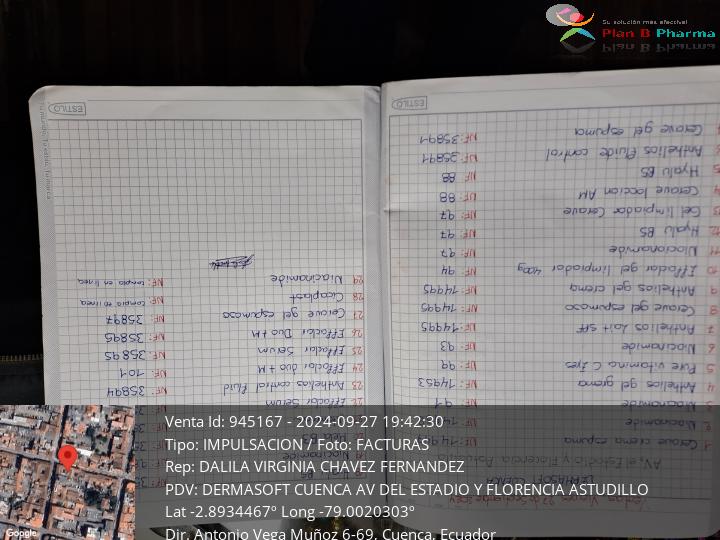 Su solución más efectiva!
Plan B Pharma
ESTILO
ESTILO
1 Cerave crema espuma
2 Niacinamide
3 Niacinamide NF: 91
4 Anthelios gel crema NF: 14953
5 Pure vitamina C Eyes NF: 99
6 Niacinamide NF: 93
7 Anthelios NF: 14995
8 Cerave gel espumoso NF: 14995
9 Anthelios gel crema NF: 14995
10 Effaclar gel limpiador 400g NF: 94
11 Niacinamide NF: 97
12 Hyalu B5 NF: 97
13 Gel limpiador Cerave NF: 97
14 Cerave loccion AM NF: 88
Hyalu B5 NF: 88
Anthelios fluide control NF: 35891
Cerave gel espuma NF: 35891
Effaclar Serum
23 Anthelios control fluid NF: 35894
24 Effaclar Duo+M NF: 101
25 Effaclar Serum NF: 35895
26 Effaclar Duo+M NF: 35895
27 Cerave gel espumoso NF: 35897
28 Cicaplast NF: compra en linea
29 Niacinamide NF: compra en linea
Venta Id: 945167 - 2024-09-27 19:42:30
Tipo: IMPULSACION / Foto: FACTURAS
Rep: DALILA VIRGINIA CHAVEZ FERNANDEZ
PDV: DERMASOFT CUENCA AV DEL ESTADIO Y FLORENCIA ASTUDILLO
Lat -2.8934467° Long -79.0020303°
Dir. Antonio Vega Muñoz 6-69, Cuenca, Ecuador
Google